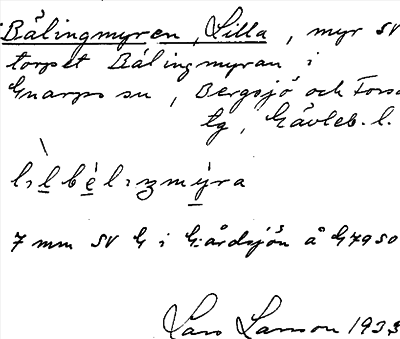 Bålingmyren, Lilla, myr SV
torpet Bålingmyran i
Gnarps sn, Bergsjö och Forsa
tg, Gävleb. l.
7 mm SV G i Gårdsjön å G7950
Lars Larson 1933